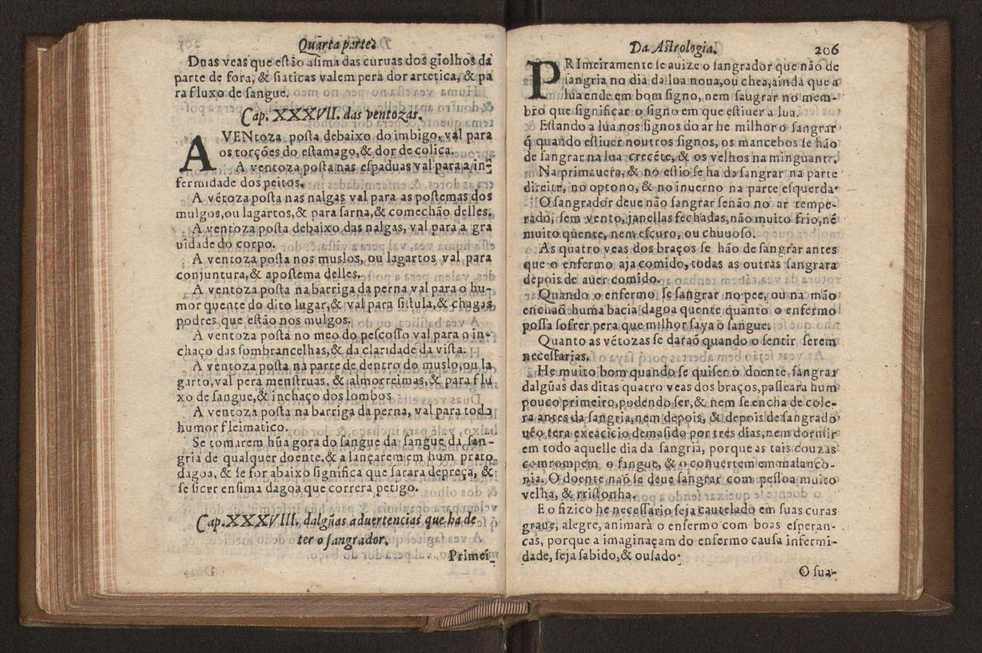 Quarta parte
Duas veas que estão asima das curuas dos giolhos da
parte de fora, & siaticas valem pera dor artetica, & pa
ra fluxo de sangue.
Cap. XXXVII. das ventozas.
AVENtoza posta debaixo do imbigo, val para
os torções do estamago, & dor de colica.
A ventoza posta nas espaduas val para a in-
fermidade dos peitos.
A vẽtoza posta nas nalgas val para as postemas dos
mulgos, ou lagartos, & para sarna, & comechão delles.
A ventoza posta debaixo das nalgas, val para a gra
uidade do corpo.
A ventoza posta nos muslos, ou lagartos val para
conjuntura, & apostema delles.
A ventoza posta na barriga da perna val para o hu-
mor quente do dito lugar, & val para fistula, & chagas
podres que estão nos mulgos.
A ventoza posta no meo do pescosso val para o in-
chaço das sombrancelhas, & da claridade da vista.
A ventoza posta na parte de dentro do muslo, ou la
garto, val pera menstruas, & almorreimas, & para flu
xo de sangue, & inchaço dos lombos
A ventoza posta na barriga da perna, val para todo
humor fleimatico.
Se tomarem hũa gora do sangue da sangue da san-
gria de qualquer doente, & a lançarem em hum prato
dagoa, & se for abaixo significa que sarara depreça, &
se ficer ensima dagoa que correra perigo.
Cap. XXXVIII. dalgũas aduertencias que ha de
ter o sangrador.
Primei-
Da Astrologia. 206
PRImeiramente se auize o sangrador que não de
sangria no dia da lua noua, ou chea, ainda que a
lua ende em bom signo, nem saugrar no mem-
bro que significar o signo em que estiuer a lua.
Estando a lua nos signos do ar he milhor o sangrar
q̃ quando estiuer noutros signos, os mancebos se hão
de sangrar na lua crecẽte, & os velhos na minguante.
Na primauera, & no estio se ha da sangrar na parte
direita, no optono, & no inuerno na parte esquerda.
O sangrador deue não sangrar senão no ar tempe-
rado, sem vento, janellas fechadas, não muito frio, nẽ
muito quente, nem escuro, ou chuuoso.
As quatro veas dos braços se hão de sangrar antes
que o enfermo aja comido, todas as outras sangrara
depois de auer comido.
Quando o enfermo se sangrar no pee, ou na mão
enchaõ huma bacia dagoa quente quanto o enfermo
possa sofrer pera que milhor saya o sangue.
Quanto as vẽtozas se daraõ quando o sentir serem
necessarias.
He muito bom quando se quiser o doente sangrar
dalgũas das ditas quatro veas dos braços, passeara hum
pouco primeiro, podendo ser, & nem se encha de cole-
ra antes da sangria, nem depois, & depois de sangrado
nẽo tera exeacicio demasido por tres dias, nem dormir
em todo aquelle dia da sangria, porque as tais couzas
comrompem o sangue, & o conuertem em malanco-
nia. O doente naõ se deue sangrar com pessoa muito
velha, & tristonha.
E o fizico he necessario seja cautelado em suas curas
graue, alegre, animarà o enfermo com boas esperan-
cas, porque a imaginaçam do enfermo causa infermi-
dade, seja sabido, & ousado.
O sua-